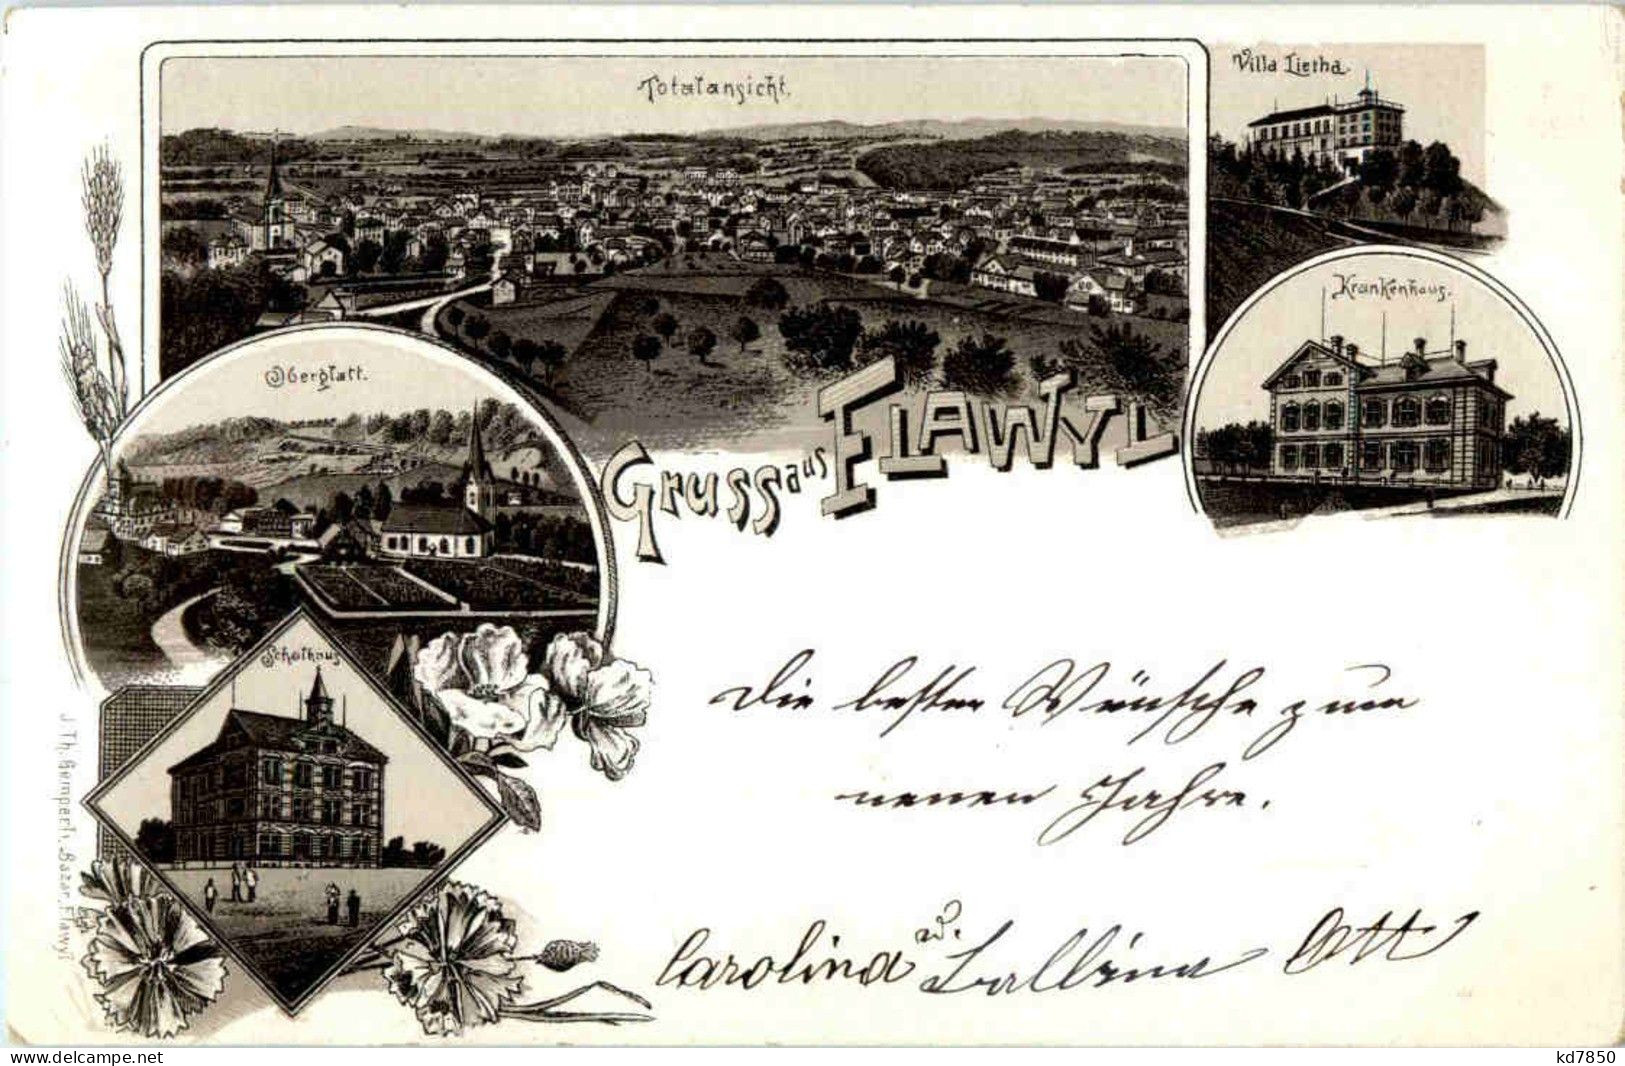 Totalansicht.
Villa Lietha.
Krankenhaus.
Oberglatt.
Gruss aus FLAWYL
Schulhaus
J. Th. Gemperli, Bazar, Flawyl
Die besten Wünsche zum
neuen Jahre.
Carolina u. Ott
www.delcampe.net
kd7850